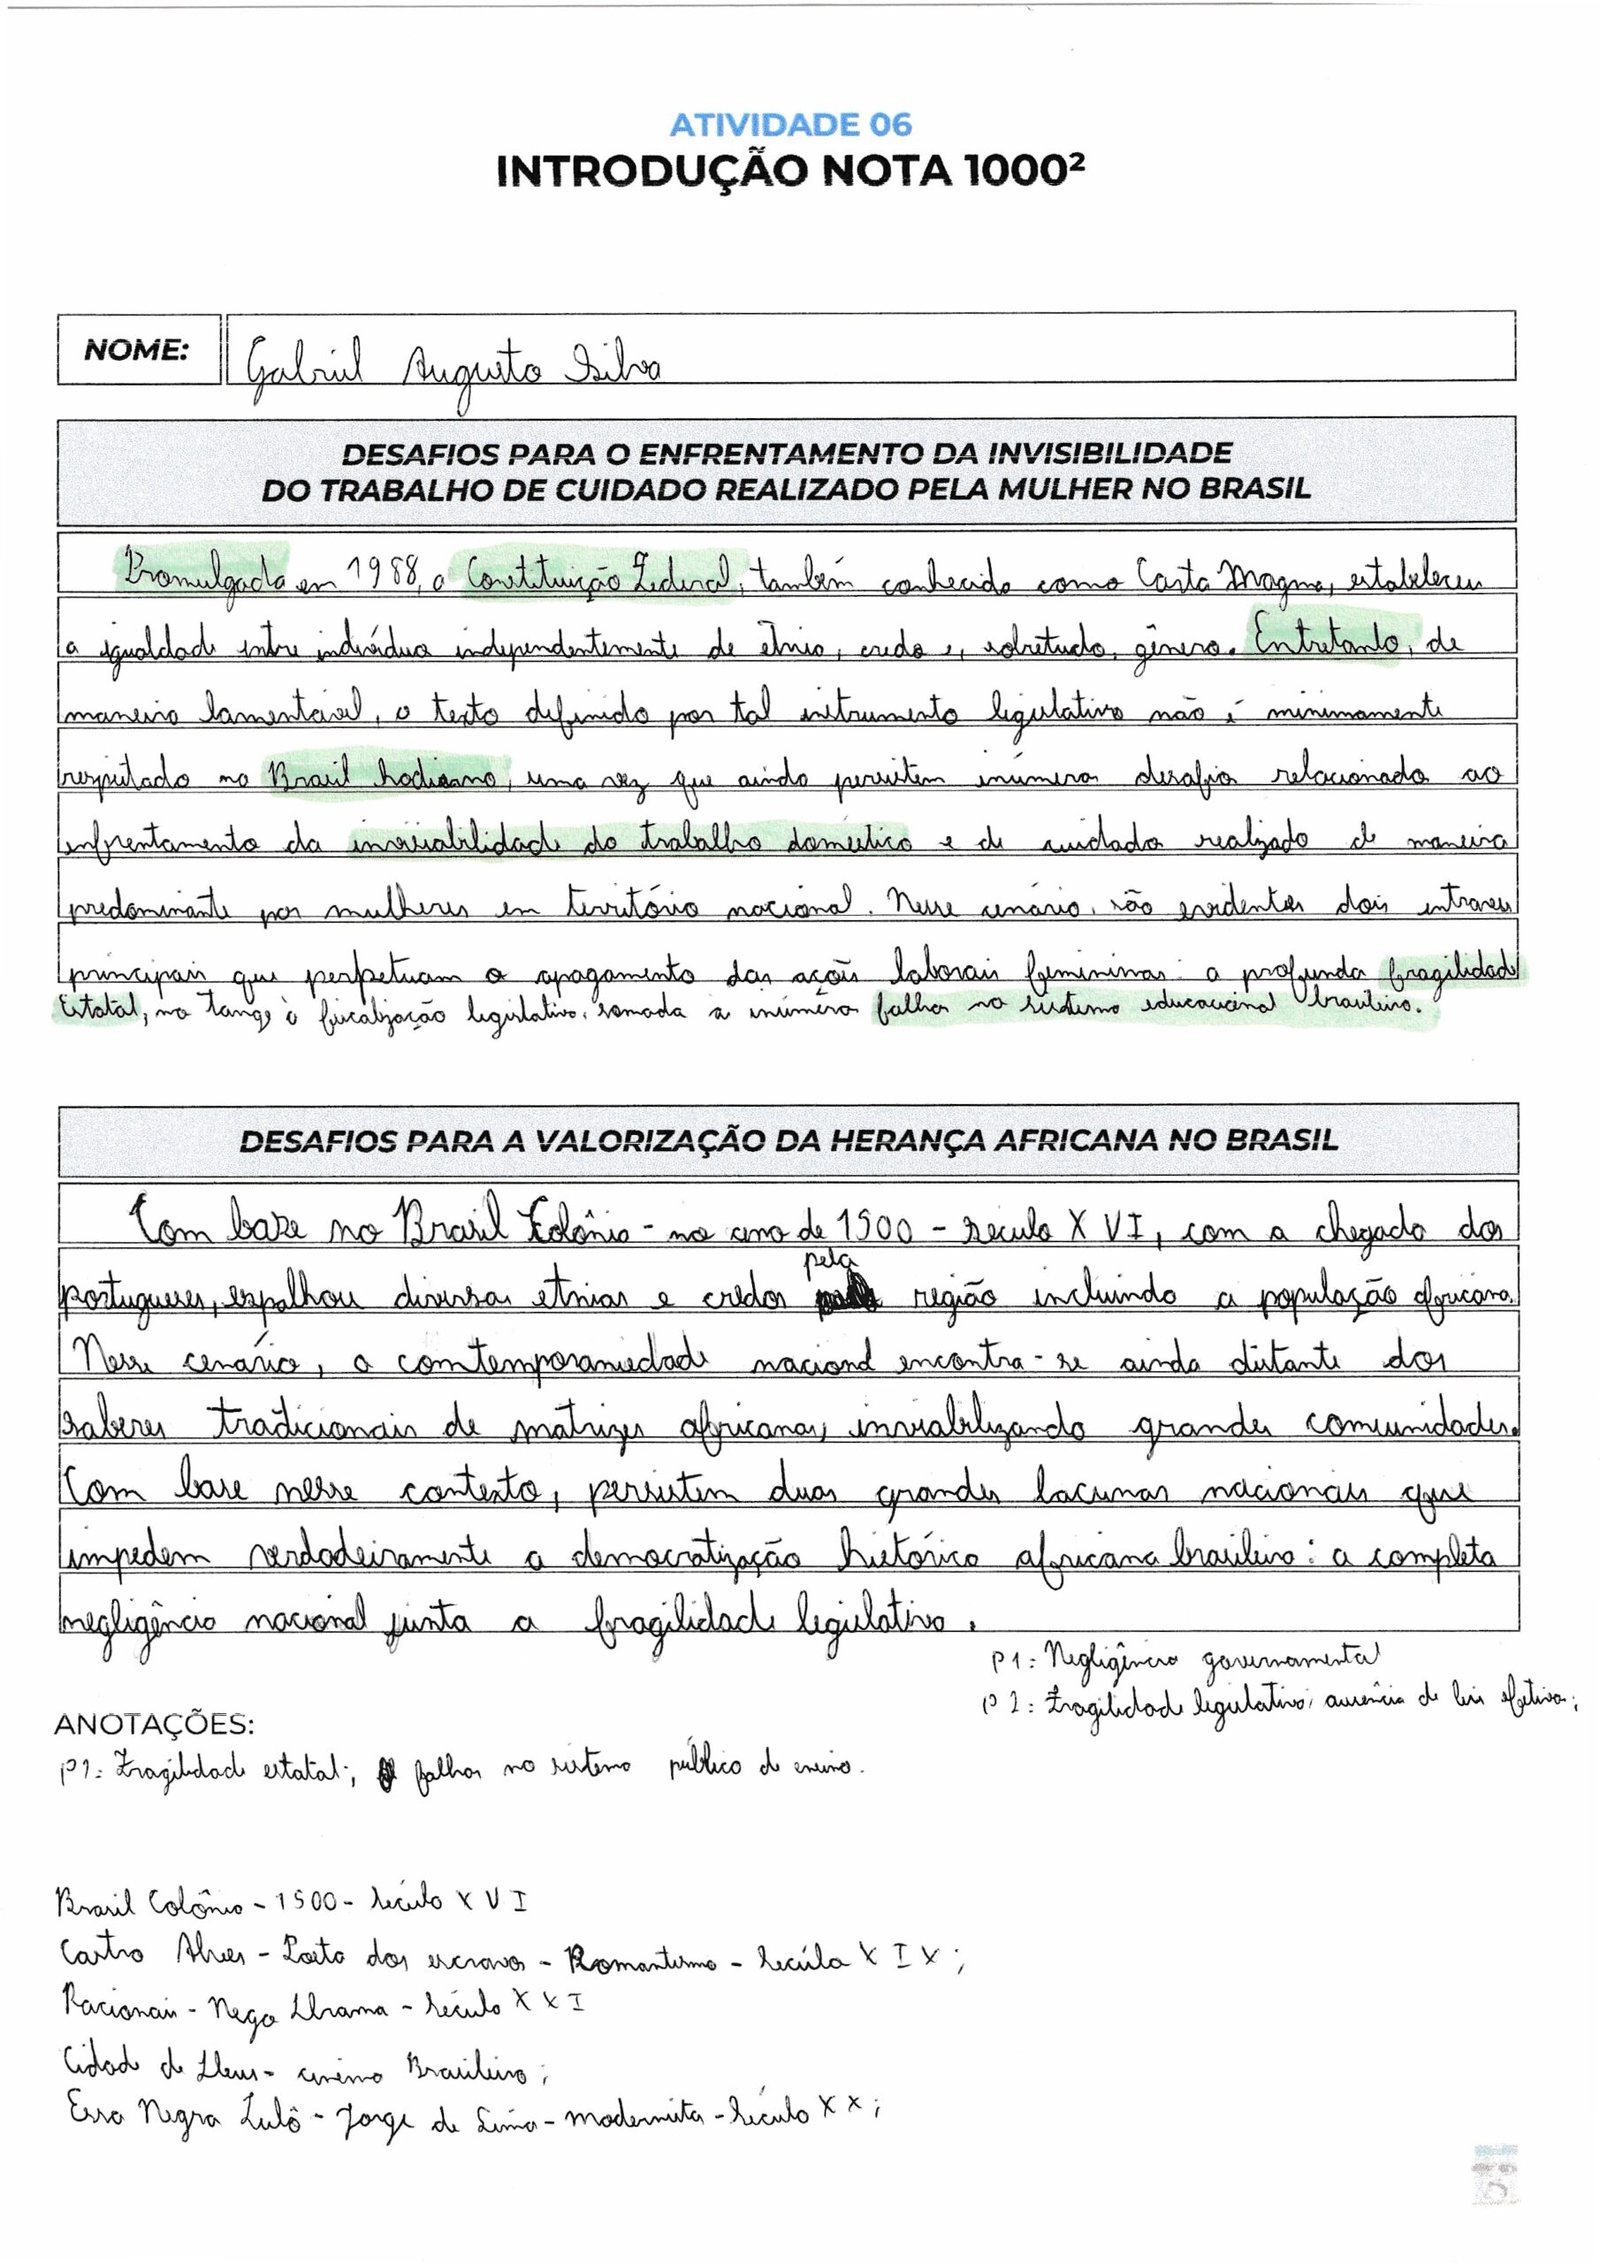 ATIVIDADE 06
INTRODUÇÃO NOTA 1000²
NOME: Gabriel Augusto Silva
DESAFIOS PARA O ENFRENTAMENTO DA INVISIBILIDADE
DO TRABALHO DE CUIDADO REALIZADO PELA MULHER NO BRASIL
Promulgada em 1988, a Constituição Federal, também conhecida como Carta Magna, estabeleceu
a igualdade entre indivíduos independentemente de etnia, credo e, sobretudo, gênero. Entretanto, de
maneira lamentável, o texto definido por tal instrumento legislativo não é minimamente
respeitado no Brasil hodierno, uma vez que ainda persistem inúmeros desafios relacionados ao
enfrentamento da invisibilidade do trabalho doméstico e de cuidados realizado de maneira
predominante por mulheres em território nacional. Nesse cenário, são evidentes dois entraves
principais que perpetuam o apagamento das ações laborais femininas: a profunda fragilidade
Estatal, no tange à fiscalização legislativa, somada a inúmeras falhas no sistema educacional brasileiro.
DESAFIOS PARA A VALORIZAÇÃO DA HERANÇA AFRICANA NO BRASIL
Com base no Brasil Colônia - no ano de 1500 - século XVI, com a chegada dos
pela
portugueses, espalhou diversas etnias e credos região incluindo a população africana.
Nesse cenário, a contemporaneidade nacional encontra-se ainda distante dos
saberes tradicionais de matrizes africanas, inviabilizando grandes comunidades.
Com base nesse contexto, persistem duas grandes lacunas nacionais que
impedem verdadeiramente a democratização histórica africana brasileira: a completa
negligência nacional junta a fragilidade legislativa.
P1: Negligência governamental
P2: Fragilidade legislativa: ausência de leis efetivas;
ANOTAÇÕES:
P1: Fragilidade estatal; falhas no sistema público de ensino.
Brasil Colônia - 1500 - século XVI
Castro Alves - Poeta dos escravos - Romantismo - Século XIX;
Racionais - Nego Drama - Século XXI
Cidade de Deus - cinema Brasileiro;
Essa Negra Fulô - Jorge de Lima - modernista - Século XX;